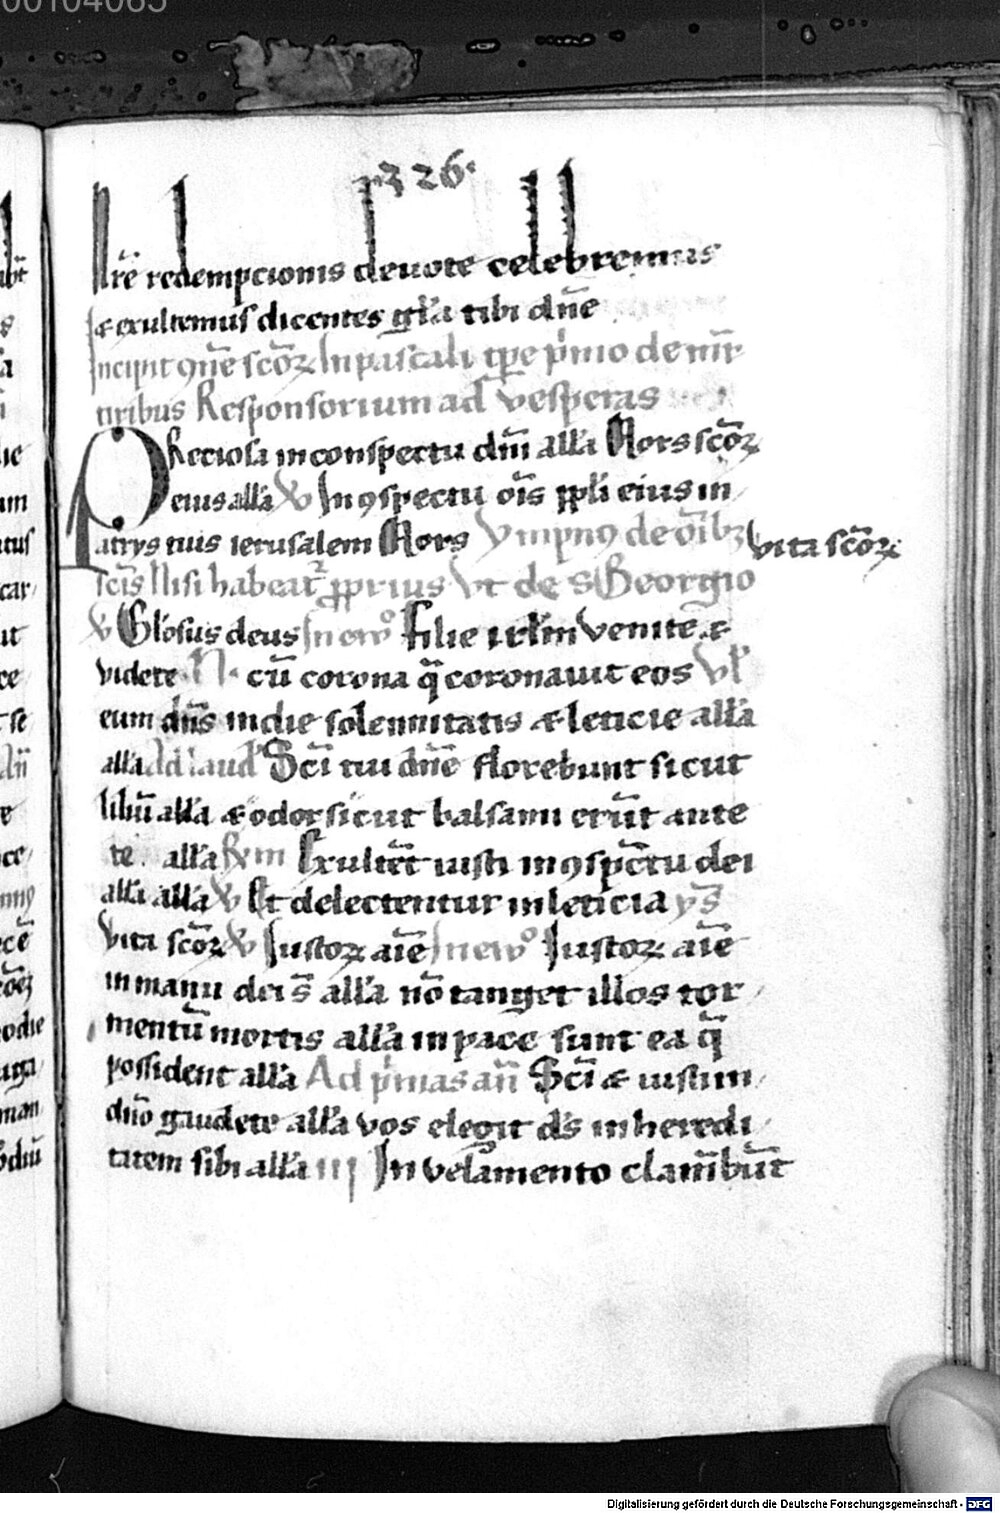 00104085
326
Nrē redempcionis deuote celebremus
& exultemus dicentes gr̄a tibi dn̄e
Incipit 9mūe scōꝝ In pascali tp̄e pͥmo de mr̄
tiribus Responsorium ad vesperas
PReciosa in conspectu dn̄i all'a Mors scōꝝ
eius all'a ℣ In 9spectu oīs ppl'i eius in
atrijs tuis ierusalem Mors Ympn9 de oībꝫ vita scōꝝ
scīs Nisi habeat̉ pprius Vt de S Georgio
℣ Gl'osus deus In ewͦ Filie irl'm venite &
videte N. cū corona q̄ coronauit eos Vl'
eum dn̄s in die solennitatis & leticie all'a
all'a Ad laud' Scī tui dn̄e florebunt sicut
liliū all'a & odor sicut balsami erūt ante
te all'a Rm̄ Exultēt iusti in 9spc̄tu dei
all'a all'a ℣ Et delectentur in leticia ys̄
vita scōꝝ ℣ Iustoꝝ aīe In ewͦ Iustoꝝ aīe
in manu dei s̄ all'a nō tanget illos tor
mentū mortis all'a in pace sunt ea q̄
possident all'a Ad pͥmas an̄ Scī & iusti in
dn̄o gaudete all'a vos elegit ds̄ in heredi
tatem sibi all'a III In velamento clam̄būt
Digitalisierung gefördert durch die Deutsche Forschungsgemeinschaft - DFG